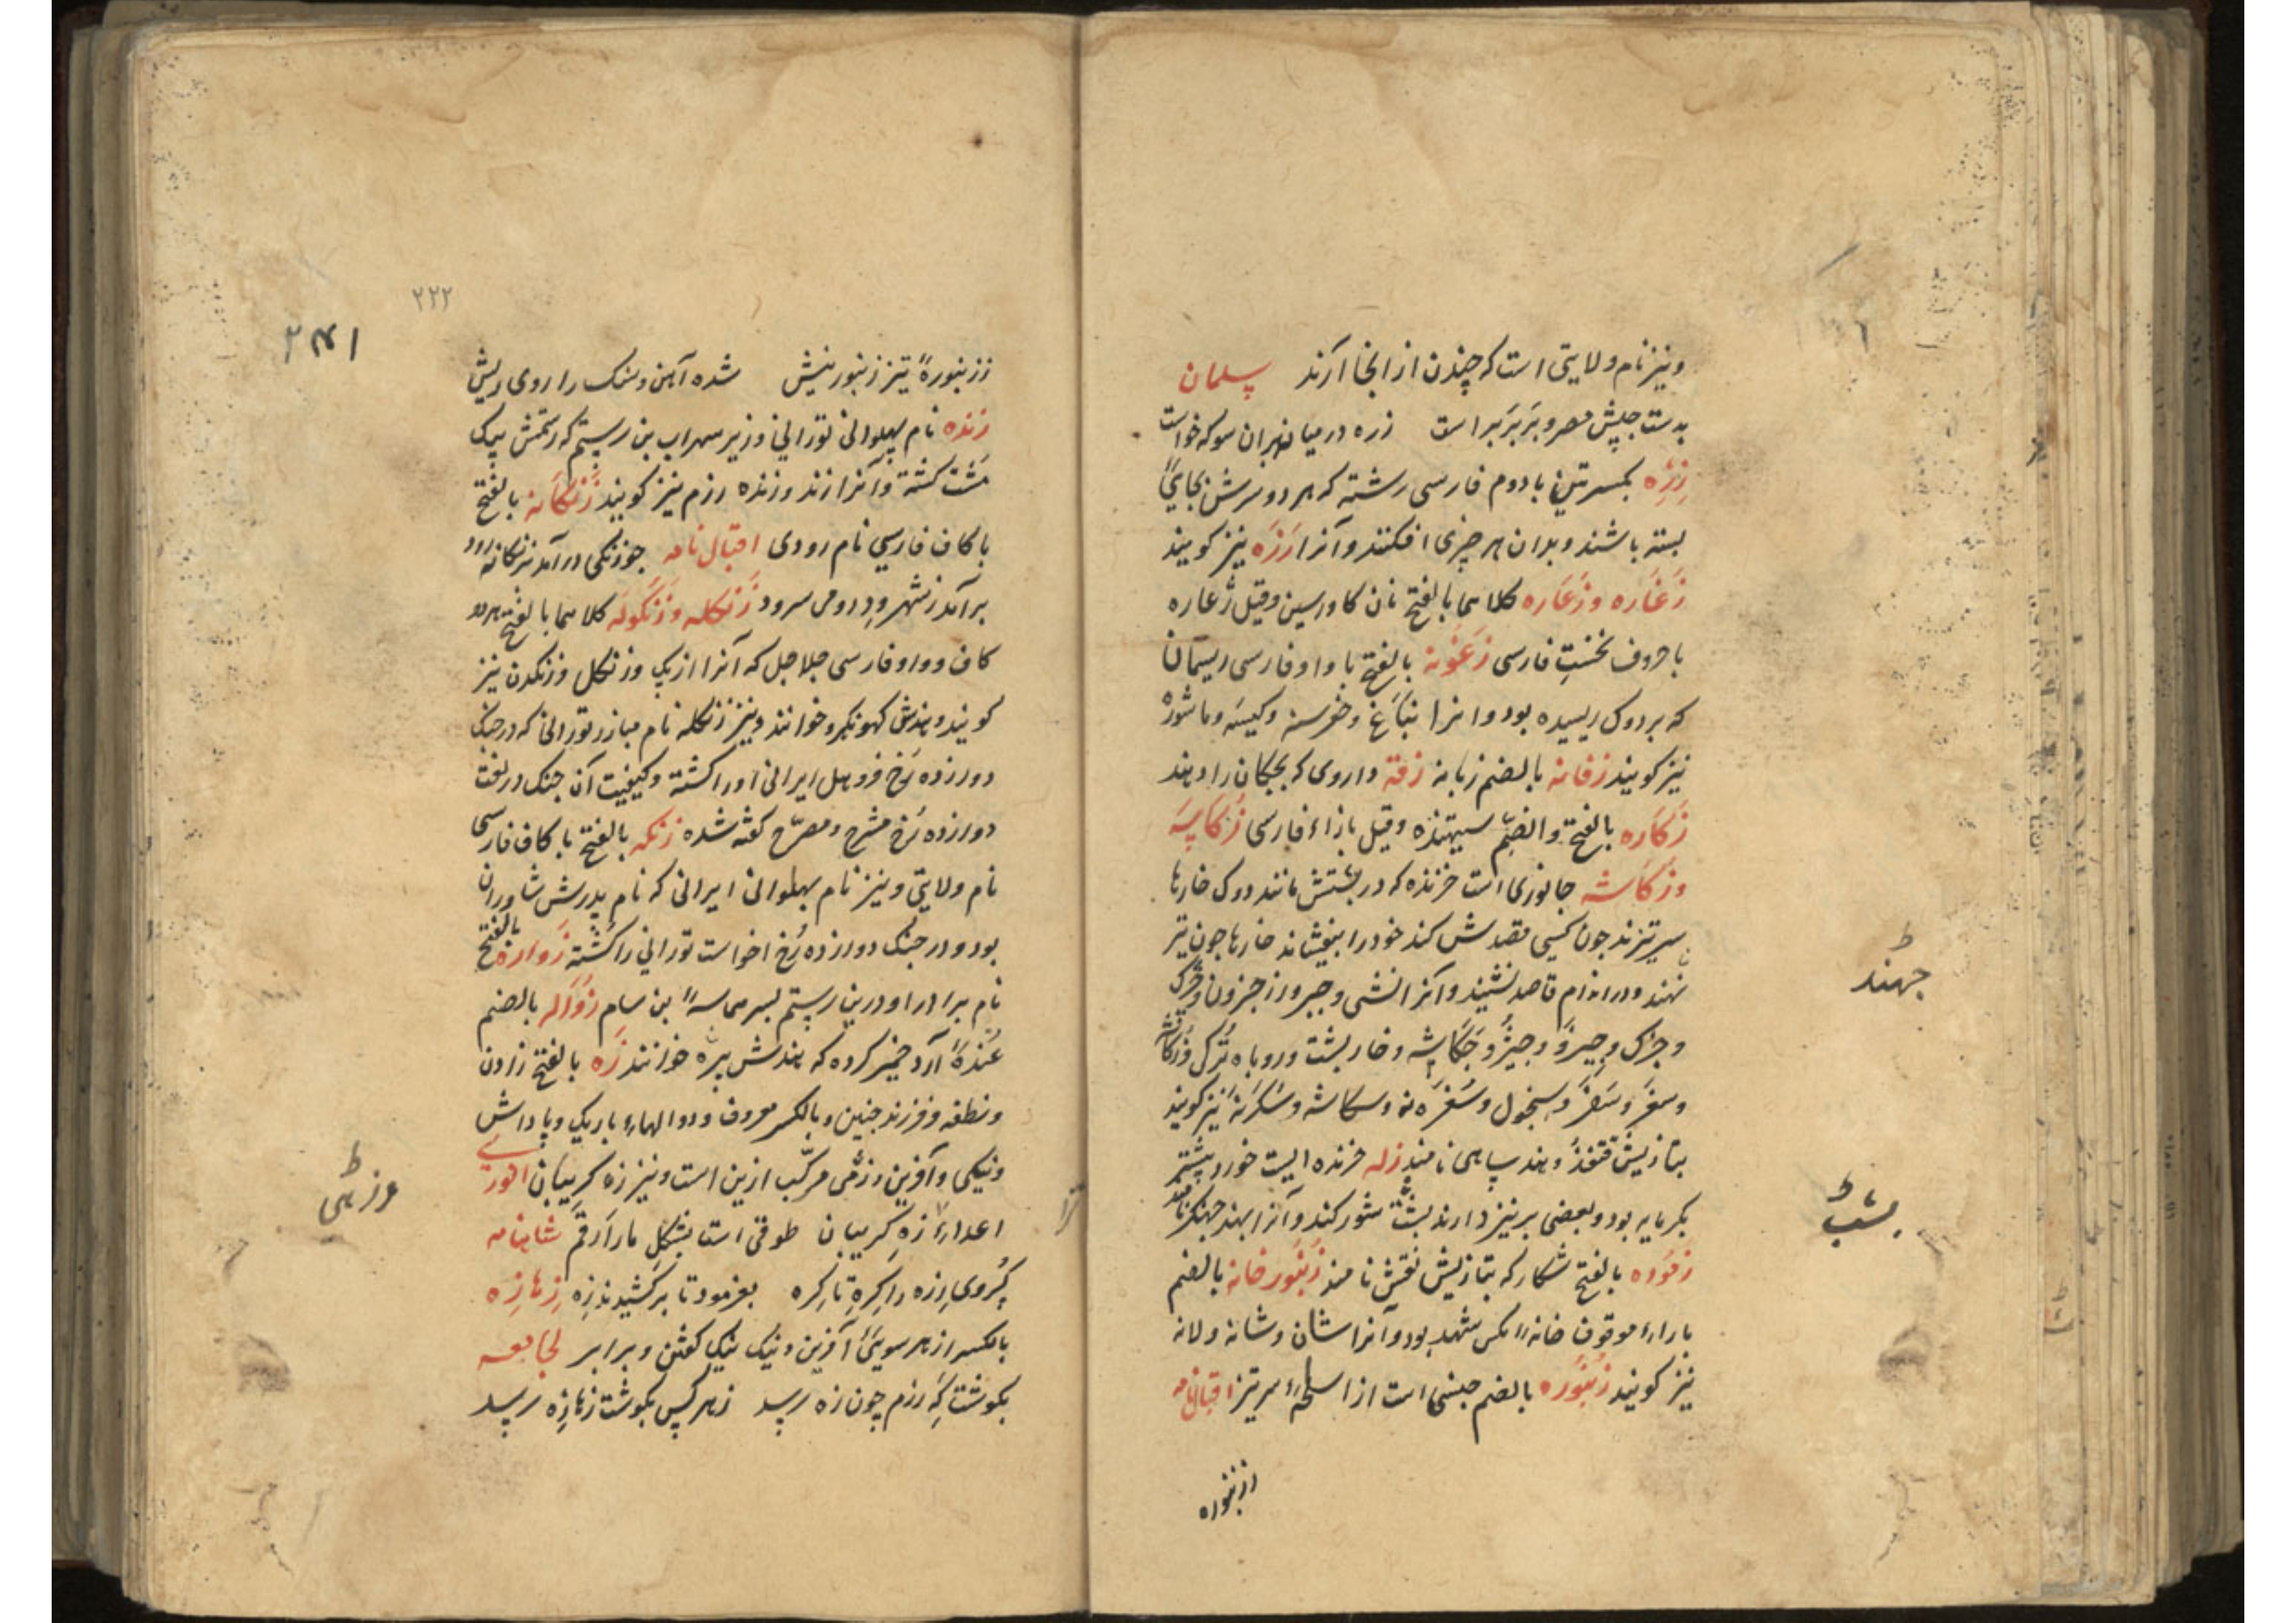 ونیز نام ولایتی است که چندن از انجا آرند سلمان
بدست جپش مصر و بربر است زره درمیانه بران سو که خواست
زرّه بکسرتین با دوم فارسی رشته که هر دو سرش بجایی
بسته باشند و بدان هر چیزی افکنند و آنرا رَزَه نیز کویند
زَغَاره وزَغَاره کلاهما بالفتح نان کاورسین وقیل زُغاره
با حروف نخست فارسی زغونه بالفتح با واو فارسی ریسمان
که بر دوک ریسیده بود و انرا بناغ و وکیسه وماشوره
نیز کویند زفانه بالضم زبانه زفته داروی که بچکان را دهند
زَکَاره بالفتح والضم ستیهنده وقیل بازاء فارسی زکاسه
وزکاشه جانوری است خزنده که در پشتش مانند دوک خارها
سرتیزند چون کسی قصدش کند خود را بیفشاند خارها چون تیر
نهند و در اندام قاصد نشیند و آنرا
وخارپشت وروباه ترکی
وسغر وسنغر وسیخول وسکاشه وسکرنه نیز کویند
بتازیش قنفذ وهند ساهی نامند زله خزنده ایست خورد پشتم
بکرمابه بود و بعضی پر نیز دارند بشب شور کند و آنرا بهند جهینکر نامند
زموده بالفتح شکار که بتازیش نقش نامند زنبور خانه بالضم
با راء موقوف خانهٔ مکس شهد بود و آنرا شان وشانه ولانه
نیز کویند زنبوره بالضم جنسی است از اسلحهٔ سرتیز اقبالنامه
ززنبوره
جهند
بشب
۲۲۲
ززنبورهٔ تیز زنبور نیش شده آهن وسنک را روی ریش
زنده نام پهلوانی تورانی وزیر سهراب بن رستم که رستمش بیک
مشت کشته و آنرا زند وزنده رزم نیز کویند زنکانه بالفتح
با کاف فارسی نام رودی اقبال نامه چو زنکی درآمد بزنکانه رود
برآمد ز شهر و در رومی سرود زنکله وزنکوله کلاهما بالفتح هردو
کاف و واو فارسی جلاجل که آنرا ازیک وزنکل وزنکدن نیز
کویند وهندش کهونکرو خوانند ونیز زنکله نام مبارز تورانی که در جنک
دوازده رخ فروهل ایرانی اورا کشته وکیفیت آن جنک در لغت
دوازده رخ مشرح ومصرّح کفته شده زنکه بالفتح با کاف فارسی
نام ولایتی ونیز نام پهلوانی ایرانی که نام پدرش شاوران
بود و در جنک دوازده رخ اخواست تورانی را کشته زواره بالفتح
نام برادر اودرین رستم بسر بن سام زُوَاله بالضم
غندهٔ آرد خمیر کرده که هندش پیره خوانند زه بالفتح زادن
ونطفه وفرزند جنین وبالکسر معروف ودوالهاء باریک وپاداش
ونیکی وآفرین وزهی مرکّب ازین است ونیز زه کریبان انوری
اعداءِ زهِ کریبان طوقی است بشکل مار ارقم شاهنامه
کُروی زره را کره تا کره بفرمود تا برکشیدند زه زهازه
بالکسر از هر سوی آفرین ونیک نیک کفتن وبرابر لجامعه
بکوشت که رزم چون زه رسید زهر کس بکوشت زهازه رسید
وزهی